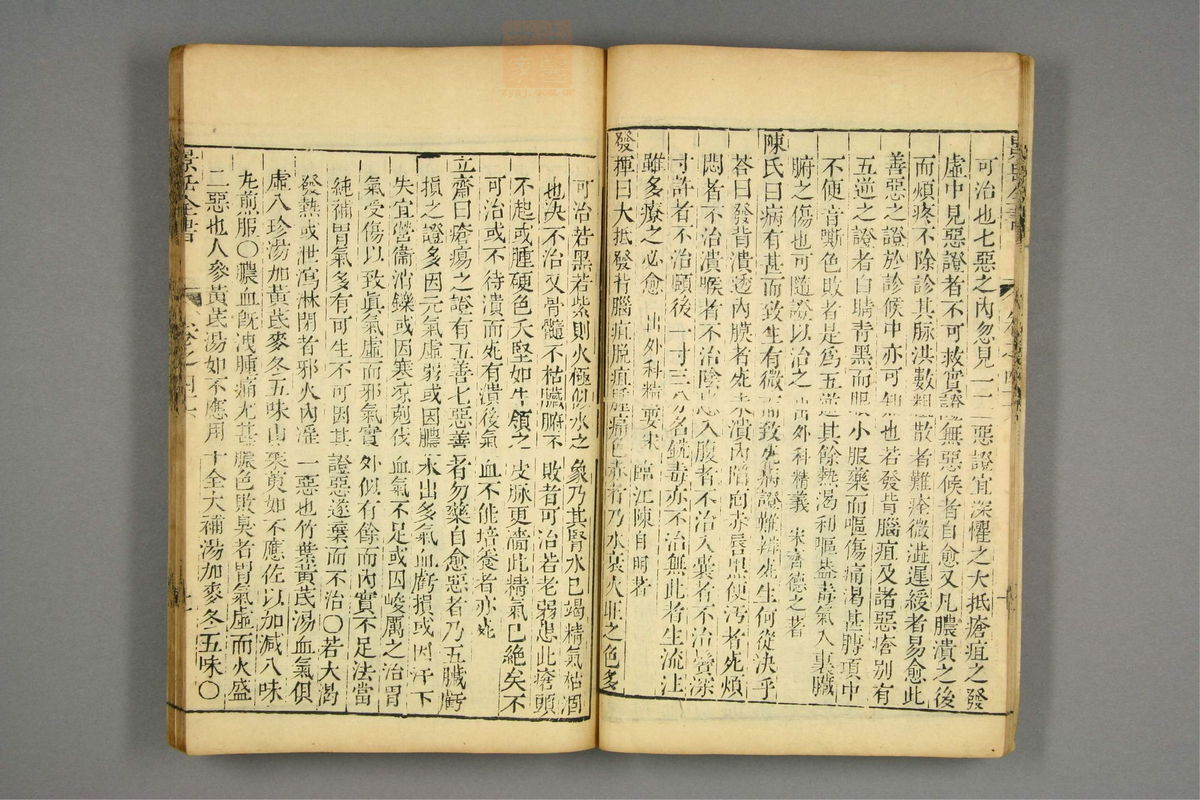 可治也七惡之內忽見一二惡證宜深懼之大抵瘡疽之發
虛中見惡證者不可救實證無惡候者自愈又凡膿潰之後
而煩疼不除診其脉洪數粗散者難痊微澁遲緩者易愈此
善惡之證於診候中亦可知也若發背腦疽及諸惡瘡別有
五逆之證者白睛青黑而眼小服藥而嘔傷痛渴甚膊項中
不便音嘶色敗者是爲五逆其餘熱渴利嘔盖毒氣入裏臟
腑之傷也可隨證以治之 出外科精義 宋齊德之著
陳氏曰病有甚而致生有微而致死病證難辨死生何從决乎
荅曰發背潰透內膜者死未潰內陷面赤唇黑便汚者死煩
悶者不治潰喉者不治陰患入腹者不治入囊者不治鬢深
寸許者不治頤後一寸三分名銳毒亦不治無此者生流注
雖多療之必愈 出外科精要宋 臨江陳自明著
發揮曰大抵發背腦疽脫疽腫痛色赤者乃水衰火旺之色多
可治若黑若紫則火極似水之象乃其腎水已竭精氣枯涸
也决不治又骨髓不枯臟腑不敗者可治若老弱患此瘡頭
不起或腫硬色夭堅如牛領之皮脉更濇此精氣已絶矣不
可治或不待潰而死有潰後氣血不能培養者亦死
立齋曰瘡瘍之證有五善七惡善者勿藥自愈惡者乃五臟虧
損之證多因元氣虛弱或因膿水出多氣血虧損或因汗下
失宜營衞消鑠或因寒凉剋伐血氣不足或因峻厲之治胃
氣受傷以致眞氣虛而邪氣實外似有餘而內實不足法當
純補胃氣多有可生不可因其證惡遂棄而不治○若大渴
發熱或泄瀉淋閉者邪火內淫一惡也竹葉黃茋湯血氣俱
虛八珍湯加黃茋麥冬五味山茱萸如不應佐以加減八味
丸煎服○膿血旣泄腫痛尤甚膿色敗臭者胃氣虛而火盛
二惡也人參黃茋湯如不應用十全大補湯加麥冬五味○
景岳全書 卷之四十六